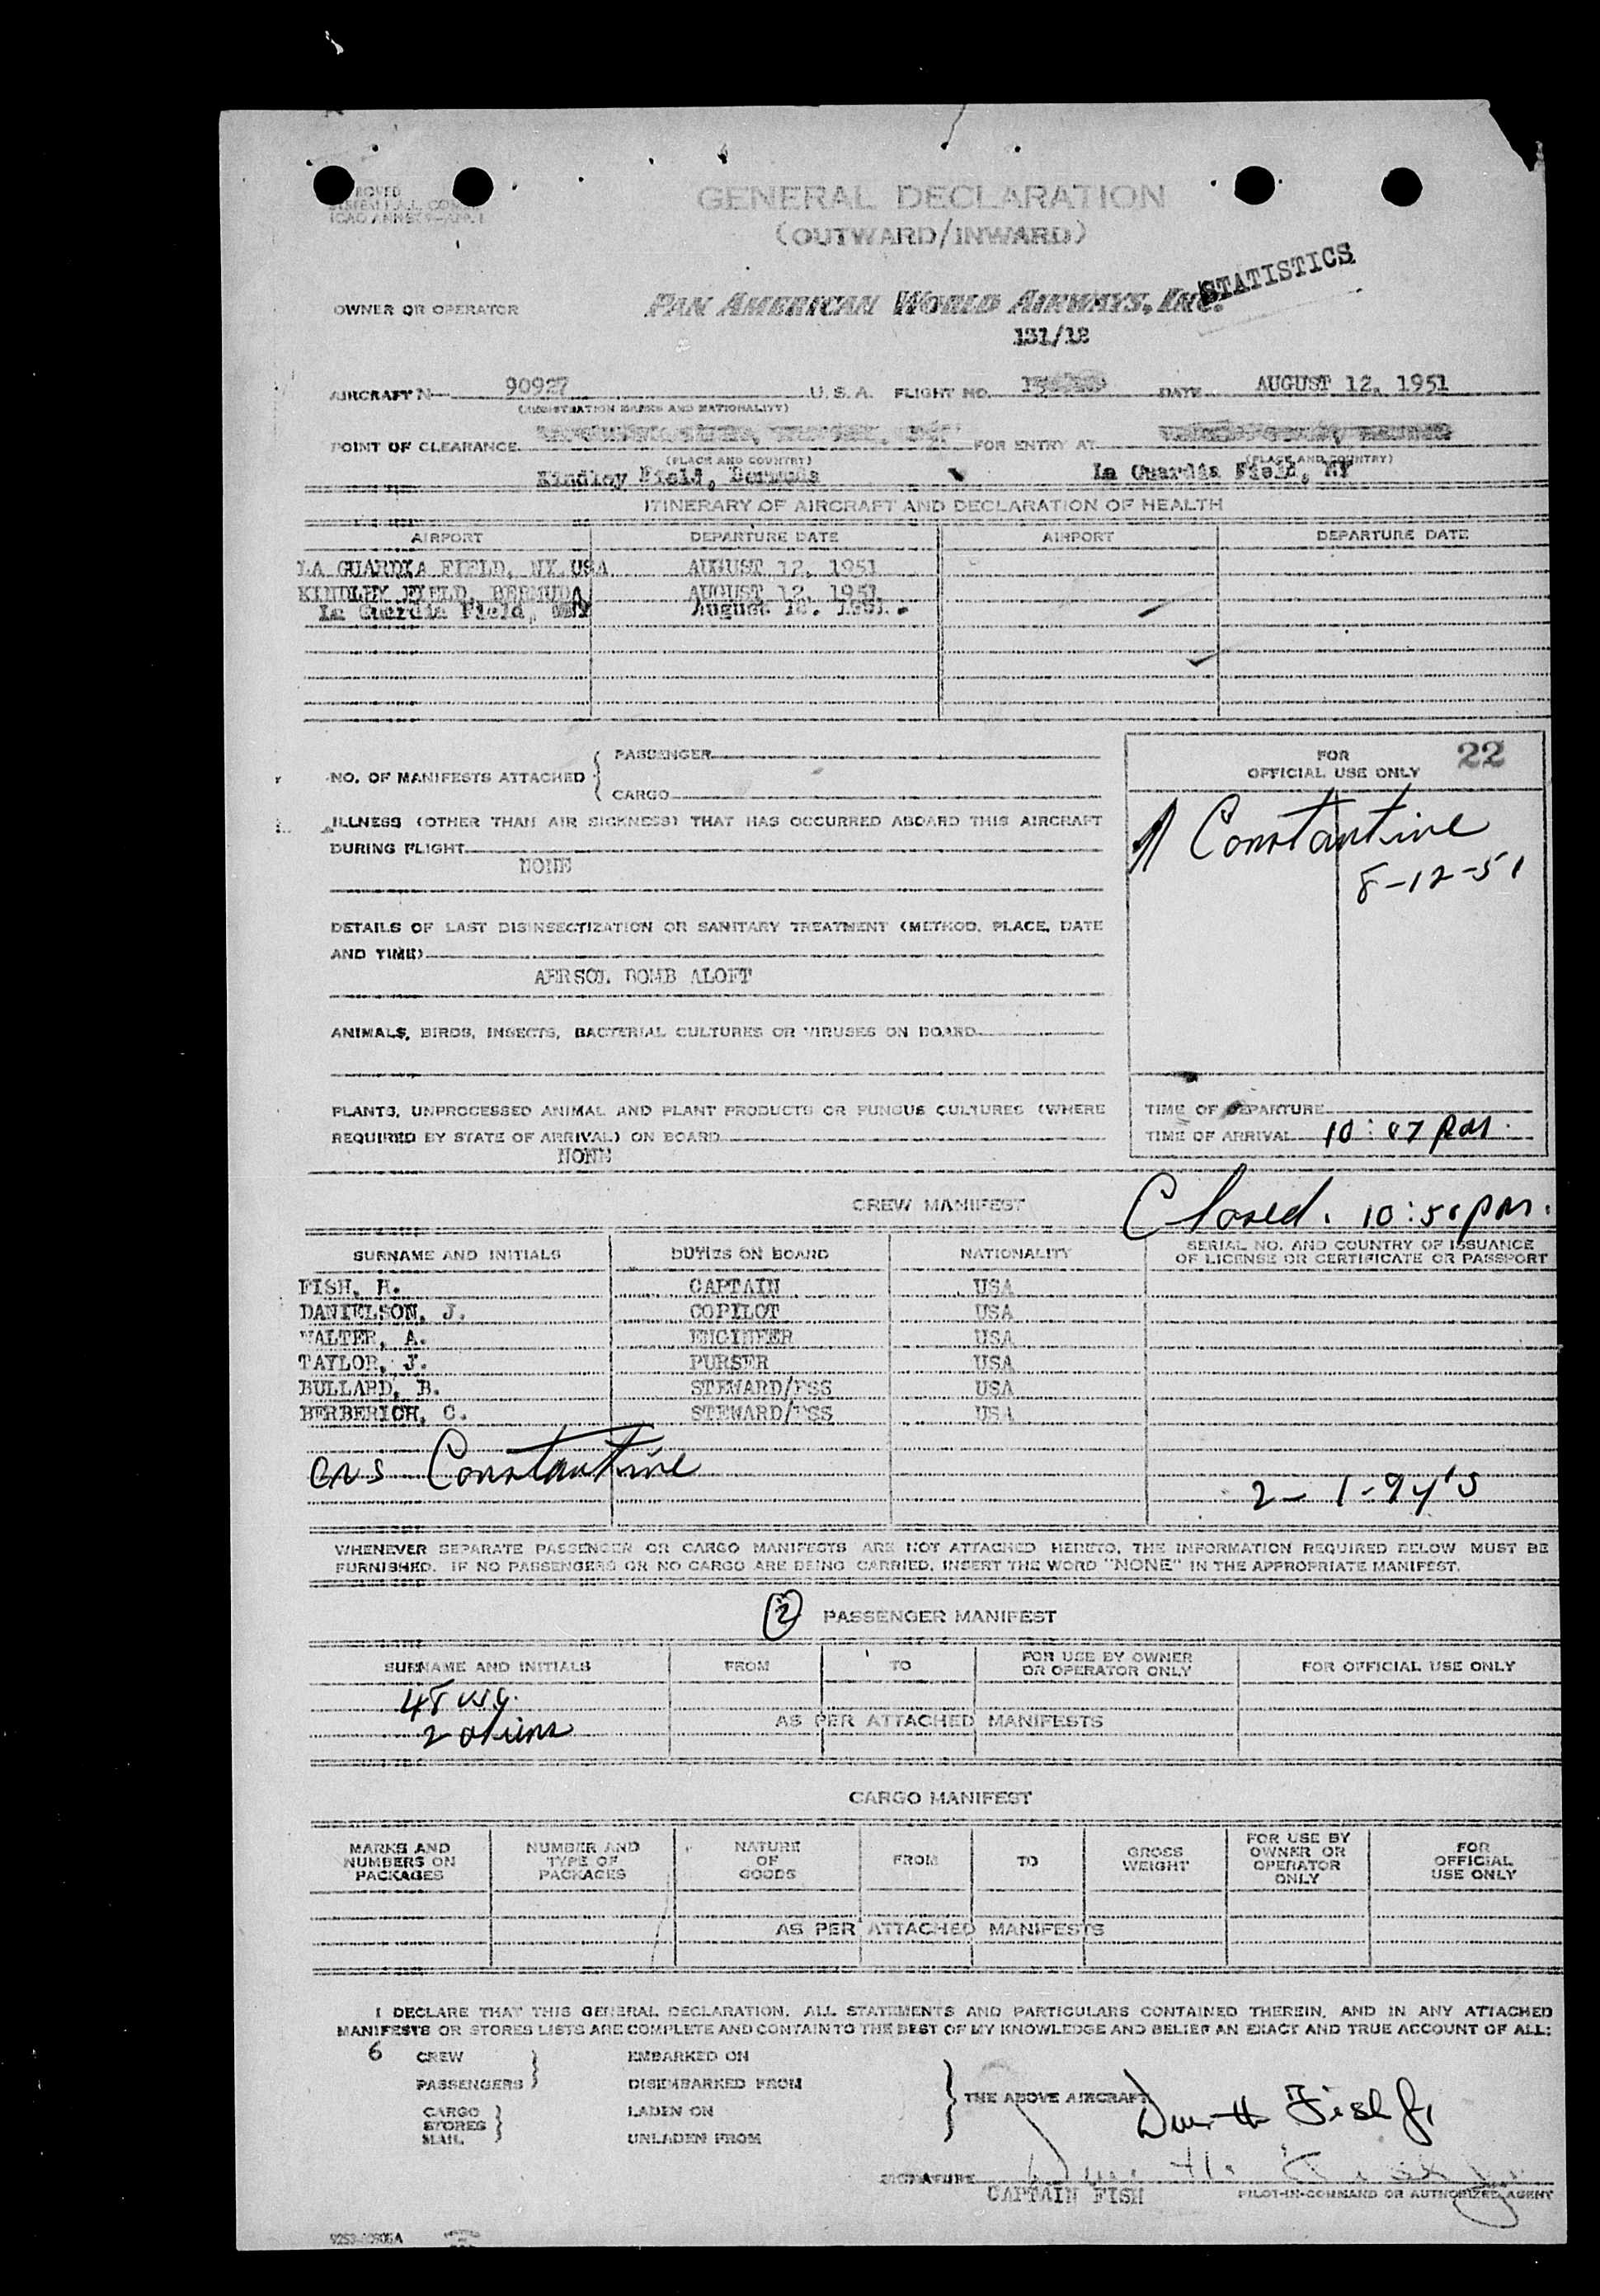 GENERAL DECLARATION
(OUTWARD/INWARD)
STATISTICS
OWNER OR OPERATOR PAN AMERICAN WORLD AIRWAYS, INC.
131/12
AIRCRAFT N— 90927 U.S.A. FLIGHT NO. DATE AUGUST 12, 1951
(REGISTRATION MARKS AND NATIONALITY)
POINT OF CLEARANCE FOR ENTRY AT
(PLACE AND COUNTRY) (PLACE AND COUNTRY)
Kindley Field, Bermuda La Guardia Field, NY
ITINERARY OF AIRCRAFT AND DECLARATION OF HEALTH
AIRPORT DEPARTURE DATE AIRPORT DEPARTURE DATE
LA GUARDIA FIELD, NY USA AUGUST 12, 1951
KINDLEY FIELD, BERMUDA AUGUST 12, 1951
La Guardia Field, August 12, 1951.
NO. OF MANIFESTS ATTACHED { PASSENGER
CARGO
FOR
OFFICIAL USE ONLY 22
Constantine
8-12-51
ILLNESS (OTHER THAN AIR SICKNESS) THAT HAS OCCURRED ABOARD THIS AIRCRAFT
DURING FLIGHT
NONE
DETAILS OF LAST DISINSECTIZATION OR SANITARY TREATMENT (METHOD, PLACE, DATE
AND TIME)
AERSOL BOMB ALOFT
ANIMALS, BIRDS, INSECTS, BACTERIAL CULTURES OR VIRUSES ON BOARD
PLANTS, UNPROCESSED ANIMAL AND PLANT PRODUCTS OR FUNGUS CULTURES (WHERE
REQUIRED BY STATE OF ARRIVAL) ON BOARD
NONE
TIME OF DEPARTURE
TIME OF ARRIVAL 10:07 PM.
CREW MANIFEST Closed. 10:50 PM.
SURNAME AND INITIALS DUTIES ON BOARD NATIONALITY SERIAL NO. AND COUNTRY OF ISSUANCE
OF LICENSE OR CERTIFICATE OR PASSPORT
FISH, H. CAPTAIN USA
DANIELSON, J. COPILOT USA
WALTER, A. ENGINEER USA
TAYLOR, J. PURSER USA
BULLARD, B. STEWARD/ESS USA
BERBERICH, C. STEWARD/ESS USA
Constantine
2- 1-94's
WHENEVER SEPARATE PASSENGER OR CARGO MANIFESTS ARE NOT ATTACHED HERETO, THE INFORMATION REQUIRED BELOW MUST BE
FURNISHED. IF NO PASSENGERS OR NO CARGO ARE BEING CARRIED, INSERT THE WORD "NONE" IN THE APPROPRIATE MANIFEST.
2 PASSENGER MANIFEST
SURNAME AND INITIALS FROM TO FOR USE BY OWNER
OR OPERATOR ONLY FOR OFFICIAL USE ONLY
AS PER ATTACHED MANIFESTS
2 aliens
CARGO MANIFEST
MARKS AND
NUMBERS ON
PACKAGES NUMBER AND
TYPE OF
PACKAGES NATURE
OF
GOODS FROM TO GROSS
WEIGHT FOR USE BY
OWNER OR
OPERATOR
ONLY FOR
OFFICIAL
USE ONLY
AS PER ATTACHED MANIFESTS
I DECLARE THAT THIS GENERAL DECLARATION, ALL STATEMENTS AND PARTICULARS CONTAINED THEREIN, AND IN ANY ATTACHED
MANIFESTS OR STORES LISTS ARE COMPLETE AND CONTAIN TO THE BEST OF MY KNOWLEDGE AND BELIEF AN EXACT AND TRUE ACCOUNT OF ALL:
6 CREW EMBARKED ON
PASSENGERS DISEMBARKED FROM
THE ABOVE AIRCRAFT
CARGO LADEN ON
STORES
MAIL UNLADEN FROM
Fish Jr.
SIGNATURE
CAPTAIN FISH PILOT-IN-COMMAND OR AUTHORIZED AGENT